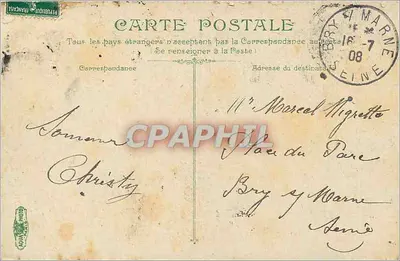 CARTE POSTALE
Tous les pays étrangers n'acceptent pas la Correspondance au
Se renseigner à la Poste
Correspondance
Adresse du destinataire
BRY S/ MARNE
16 -7
08
SEINE
Christy
Mr Marcel Migrette
Place du Parc
Bry s/ Marne
Seine
CPAPHIL